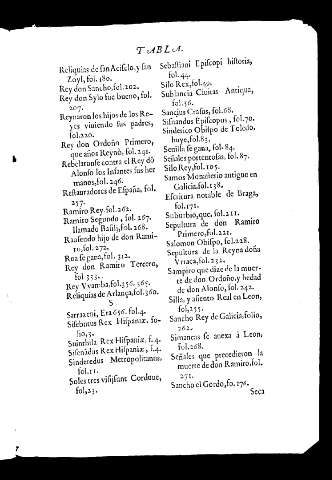 TABLA.
Reliquias de san Acisclo, y san
Zoyl, fol. 380.
Rey don Sancho, fol. 202.
Rey don Sylo fue bueno, fol.
207.
Reynaron los hijos de los Re-
yes viuiendo sus padres,
fol. 220.
Rey don Ordoño Primero,
que años Reynò, fol. 241.
Rebelaronse contra el Rey dõ
Alonso los Infantes sus her
manos, fol. 246.
Restauradores de España, fol.
257.
Ramiro Rey. fol. 262.
Ramiro Segundo, fol. 267.
llamado Basilis, fol. 268.
Raosendo hijo de don Rami-
ro, fol. 272.
Roa se gano, fol. 312.
Rey don Ramiro Tercero,
fol 355.
Rey Vvamba, fol. 356. 365.
Reliquias de Arlança, fol. 360.
S
Sarraceni, Era 656. fol. 4.
Sisebutus Rex Hispaniæ, fo-
lio, 3.
Suinthila Rex Hispaniæ, f. 4.
Sisenãdus Rex Hispaniæ, f. 4.
Sinderedus Metropolitanus,
fol. 11.
Soles tres visi sunt Corduue,
fol, 23.
Sebastiani Episcopi historia,
fol. 44.
Silo Rex, fol. 49.
Sublancia Ciuitas Antiqua,
fol. 56.
Sanctius Crasus, fol. 68.
Sisnandus Episcopus, fol. 70.
Sinderico Obispo de Toledo,
huye, fol. 83.
Seuilla se gana, fol. 84.
Señales portentosas, fol. 87.
Silo Rey, fol. 105.
Samos Monasterio antiguo en
Galicia, fol. 138.
Escritura notable de Braga,
fol. 171.
Suburbio, que, fol. 211.
Sepultura de don Ramiro
Primero, fol. 221.
Salomon Obispo, fol. 228.
Sepultura de la Reyna doña
Vrraca, fol. 232.
Sampiro que dize de la muer-
te de don Ordoño, y hedad
de don Alonso, fol. 242.
Silla, y asiento Real en Leon,
fol, 255.
Sancho Rey de Galicia, folio,
262.
Simancas se anexa à Leon,
fol. 268.
Señales que precedieron la
muerte de don Ramiro, fol.
271.
Sancho el Gordo, fo. 276.
Seca